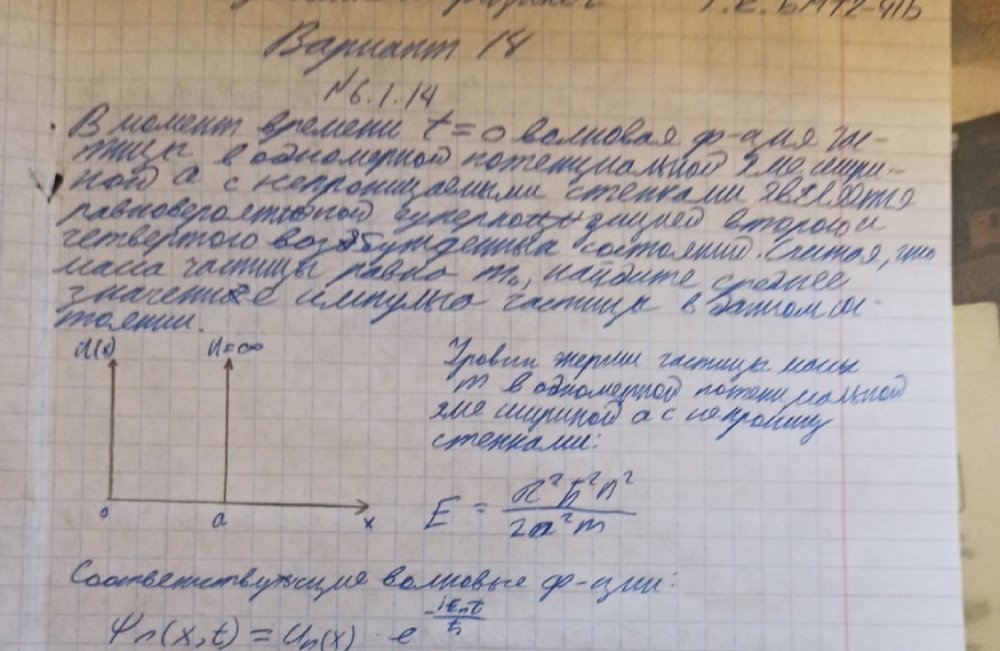 Вариант 14
№6.1.14
В момент времени t=0 волновая ф-ция ча-
тица в одномерной потенциальной яме шири-
ной a с непроницаемыми стенками является
равновероятной суперпозицией второго и
четвертого возбужденных состояний. Считая, что
масса частицы равна m₀, найдите среднее
значение импульса частицы в данном со-
тоянии.
U(x) U=∞
0 a x
Уровни энергии частицы массы
m в одномерной потенциальной
яме шириной a с непрониц
стенками:
E = π²ħ²n² / 2a²m
Соответствующие волновые ф-ции:
Ψn(x,t) = Un(x) · e^(-iEnt/ħ)